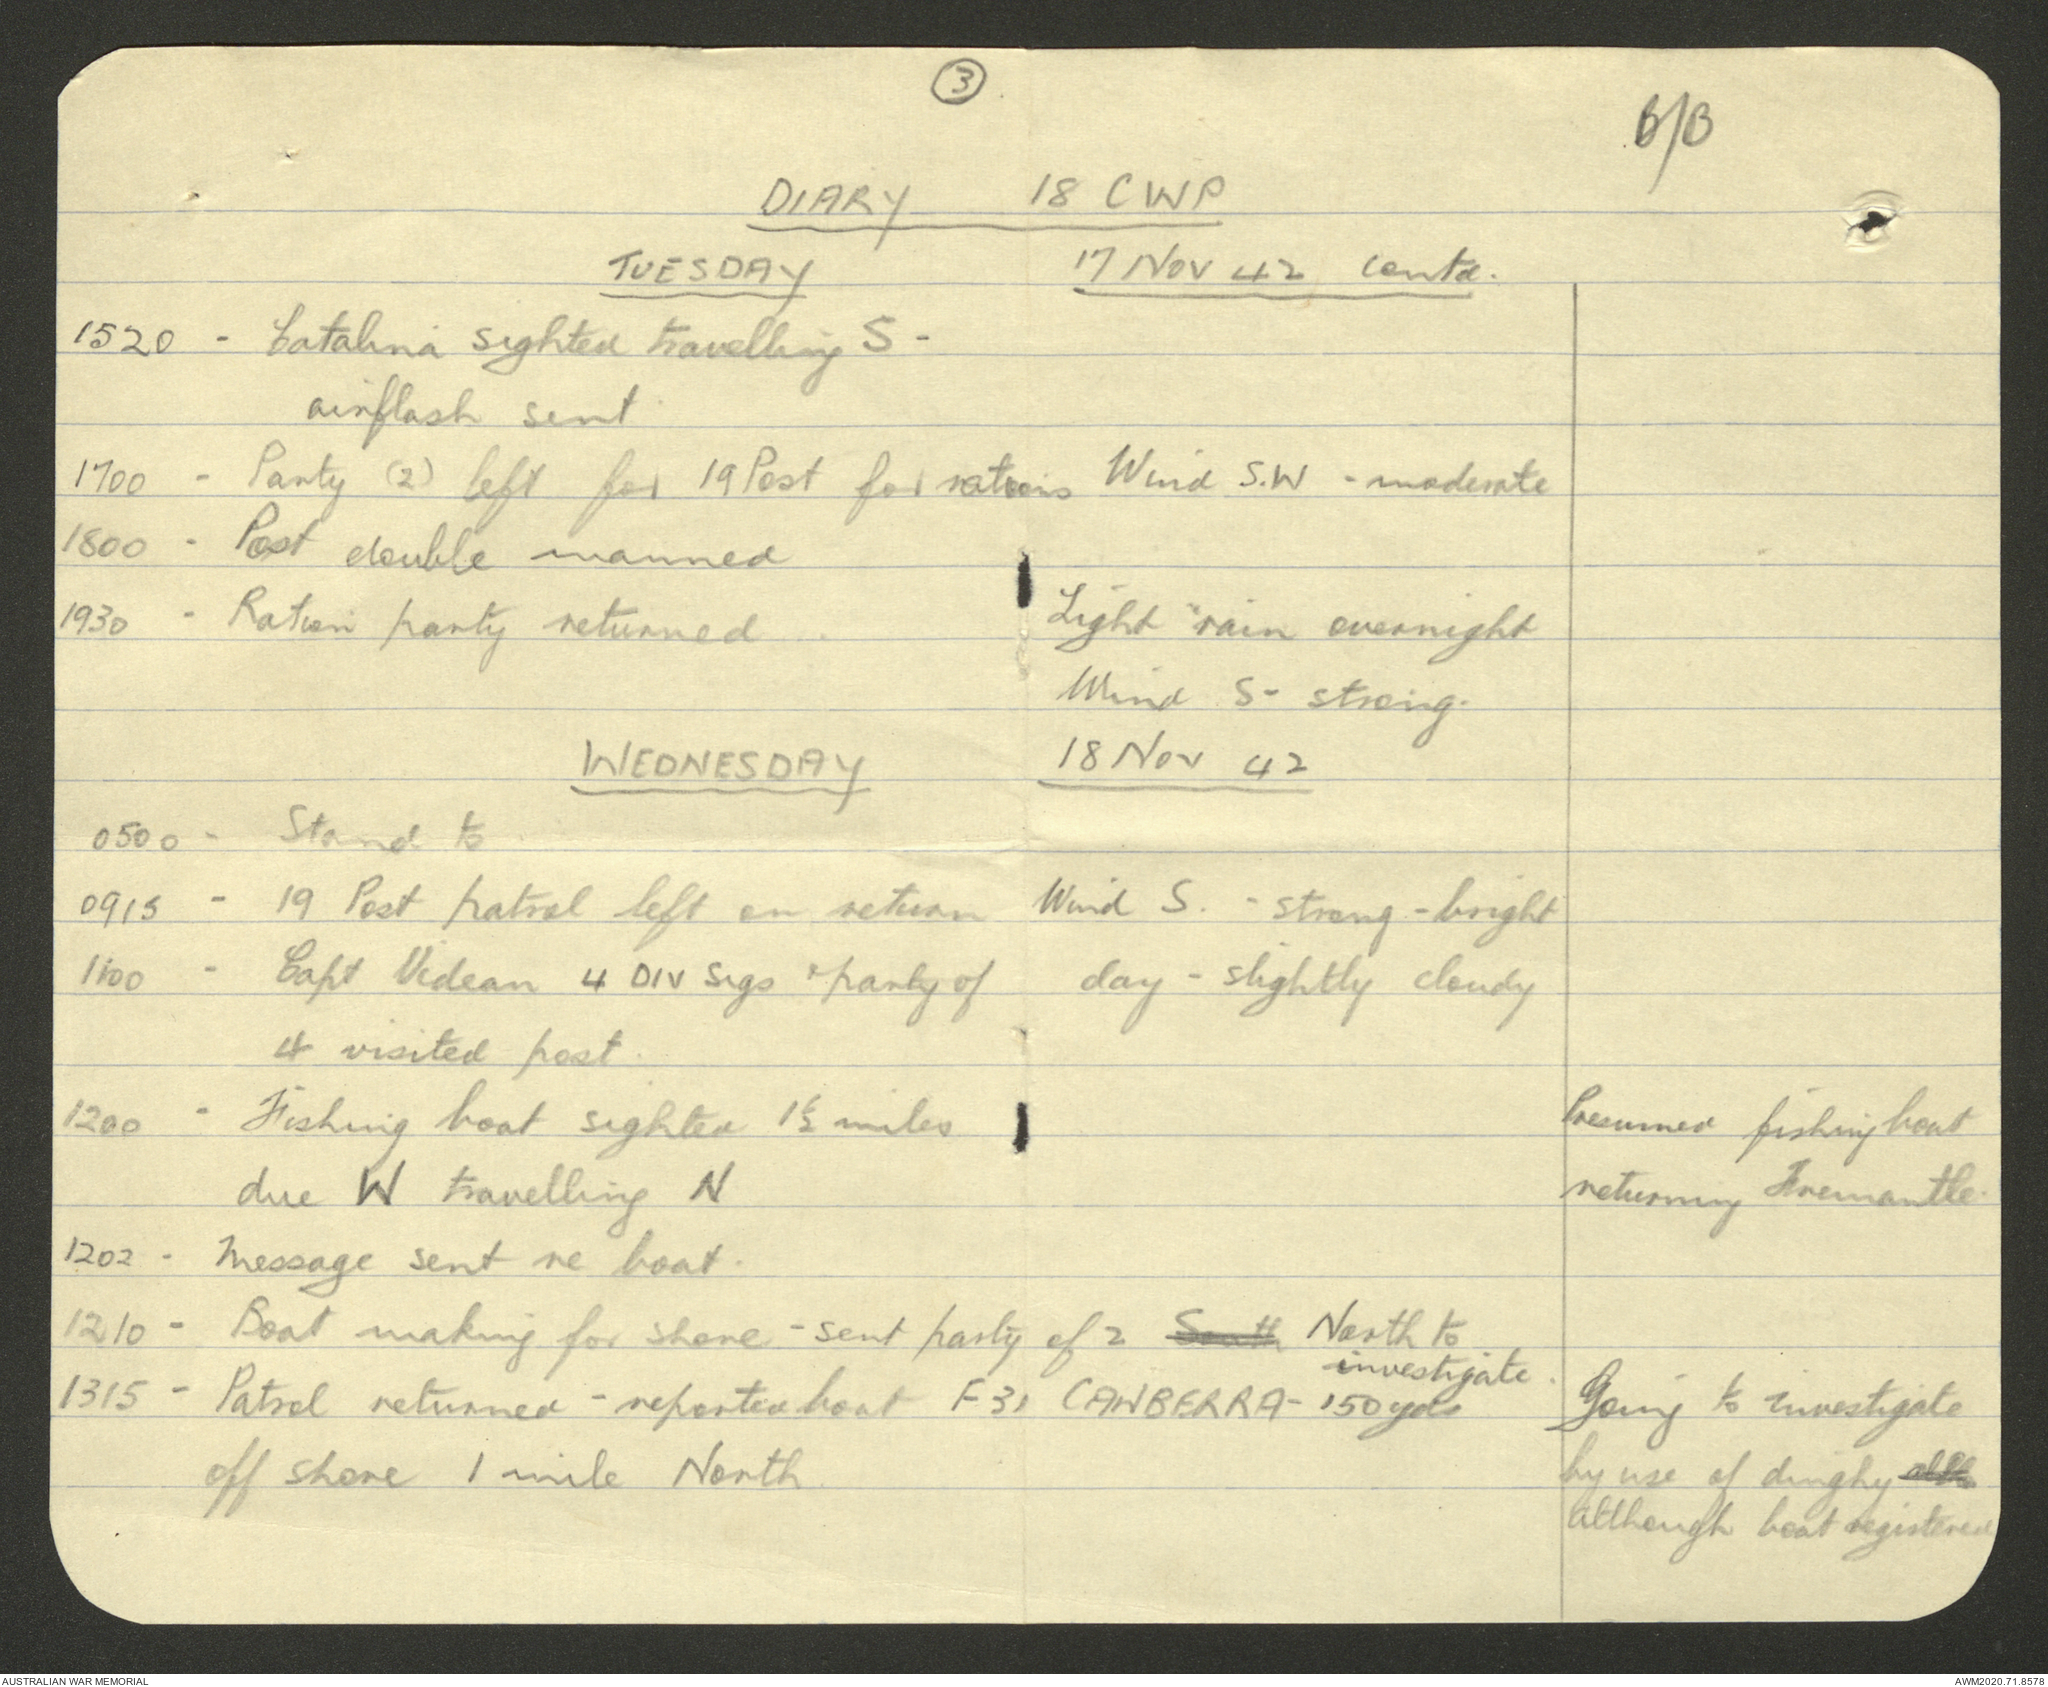 3
B/B
DIARY 18 CWP
TUESDAY 17 Nov 42 Contd.
1520 - Catalina sighted travelling S -
airflash sent
1700 - Party (2) left for 19 Post for rations Wind S.W - moderate
1800 - Post double manned
1930 - Ration party returned Light rain overnight
Wind S - strong.
WEDNESDAY 18 Nov 42
0500 - Stand to
0915 - 19 Post patrol left on return Wind S. - strong - bright
1100 - Capt Videan 4 DIV Sigs & party of day - slightly cloudy
4 visited post.
1200 - Fishing boat sighted 1½ miles Presumed fishing boat
due W travelling N returning Fremantle.
1202 - Message sent re boat.
1210 - Boat making for shore - sent party of 2 South North to
investigate.
1315 - Patrol returned - reported boat F31 CANBERRA - 150 yds Going to investigate
off shore 1 mile North by use of dinghy alth
although boat registered
AUSTRALIAN WAR MEMORIAL AWM2020.71.8578